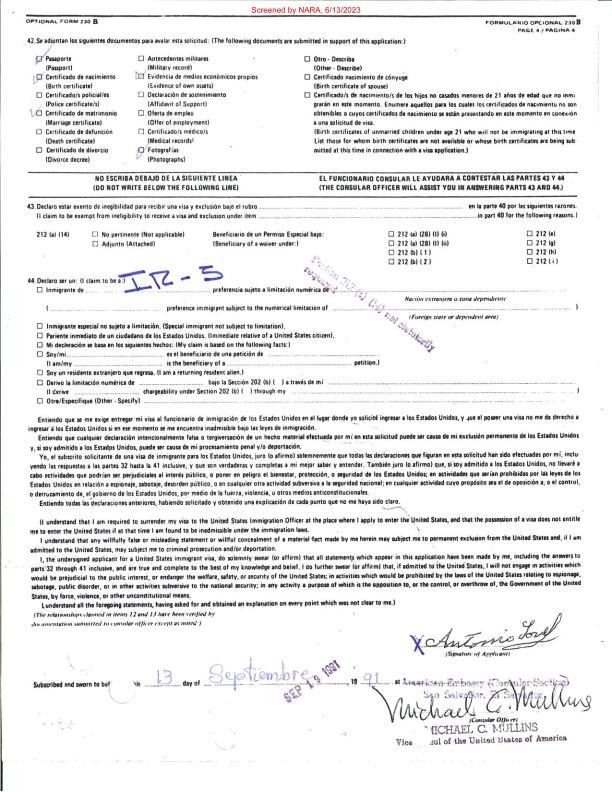 Screened by NARA, 6/13/2023
OPTIONAL FORM 230 B
FORMULARIO OPCIONAL 230 B
PAGE 4 / PAGINA 4
42. Se adjuntan los siguientes documentos para avalar esta solicitud: (The following documents are submitted in support of this application:)
☐ Pasaporte
(Passport)
☐ Certificado de nacimiento
(Birth certificate)
☐ Certificado/s policial/es
(Police certificate/s)
☐ Certificado de matrimonio
(Marriage certificate)
☐ Certificado de defunción
(Death certificate)
☐ Certificado de divorcio
(Divorce decree)
☐ Antecedentes militares
(Military record)
☐ Evidencia de medios económicos propios
(Evidence of own assets)
☐ Declaración de sostenimiento
(Affidavit of Support)
☐ Oferta de empleo
(Offer of employment)
☐ Certificado/s médico/s
(Medical records)
☐ Fotografías
(Photographs)
☐ Otro - Describa
(Other - Describe)
☐ Certificado nacimiento de cónyuge
(Birth certificate of spouse)
☐ Certificado/s de nacimiento/s de los hijos no casados menores de 21 años de edad que no inmi
grarán en este momento. Enumere aquellos para los cuales los certificados de nacimiento no son
obtenibles o cuyos certificados de nacimiento se están presentando en este momento en conexión
a una solicitud de visa.
(Birth certificates of unmarried children under age 21 who will not be immigrating at this time
List those for whom birth certificates are not available or whose birth certificates are being sub
mitted at this time in connection with a visa application.)
NO ESCRIBA DEBAJO DE LA SIGUIENTE LINEA
(DO NOT WRITE BELOW THE FOLLOWING LINE)
EL FUNCIONARIO CONSULAR LE AYUDARA A CONTESTAR LAS PARTES 43 Y 44
(THE CONSULAR OFFICER WILL ASSIST YOU IN ANSWERING PARTS 43 AND 44.)
43. Declaro estar exento de inegibilidad para recibir una visa y exclusión bajo el rubro ... en la parte 40 por las siguientes razones.
(I claim to be exempt from ineligibility to receive a visa and exclusion under item ... in part 40 for the following reasons.)
212 (a) (14) ☐ No pertinente (Not applicable)
☐ Adjunto (Attached)
Beneficiario de un Permiso Especial bajo:
(Beneficiary of a waiver under:)
☐ 212 (a) (28) (I) (i)
☐ 212 (a) (28) (I) (ii)
☐ 212 (b) (1)
☐ 212 (b) (2)
☐ 212 (e)
☐ 212 (g)
☐ 212 (h)
☐ 212 (i)
Section 212 (a) (14) not statutorily
required
44. Declaro ser un: (I claim to be a:)
IR-5
☐ Inmigrante de ... preferencia sujeto a limitación numérica de ...
Nación extranjera o zona dependiente
( ... preference immigrant subject to the numerical limitation of ... )
(Foreign state or dependent area)
☐ Inmigrante especial no sujeto a limitación. (Special immigrant not subject to limitation).
☐ Pariente inmediato de un ciudadano de los Estados Unidos. (Immediate relative of a United States citizen).
☐ Mi declaración se basa en los siguientes hechos: (My claim is based on the following facts:)
☐ Soy/mi ... es el beneficiario de una petición de ...
(I am/my ... is the beneficiary of a ... petition.)
☐ Soy un residente extranjero que regresa. (I am a returning resident alien.)
☐ Derivo la limitación numérica de ... bajo la Sección 202 (b) ( ) a través de mí ...
(I derive ... chargeability under Section 202 (b) ( ) through my ... )
☐ Otra/Especifique (Other - Specify) ...
Entiendo que se me exige entregar mi visa al funcionario de inmigración de los Estados Unidos en el lugar donde yo solicité ingresar a los Estados Unidos, y que el poseer una visa no me da derecho a
ingresar a los Estados Unidos si en ese momento se me encuentra inadmisible bajo las leyes de inmigración.
Entiendo que cualquier declaración intencionalmente falsa o tergiversación de un hecho material efectuada por mí en esta solicitud puede ser causa de mi exclusión permanente de los Estados Unidos
y, si soy admitido a los Estados Unidos, puede ser causa de mi procesamiento penal y/o deportación.
Yo, el subscrito solicitante de una visa de inmigrante para los Estados Unidos, juro (o afirmo) solemnemente que todas las declaraciones que figuran en esta solicitud han sido efectuadas por mí, inclu-
yendo las respuestas a las partes 32 hasta la 41 inclusive, y que son verdaderas y completas a mi mejor saber y entender. También juro (o afirmo) que, si soy admitido a los Estados Unidos, no llevaré a
cabo actividades que podrían ser perjudiciales al interés público, o poner en peligro el bienestar, protección, o seguridad de los Estados Unidos; en actividades que serían prohibidas por las leyes de los
Estados Unidos en relación a espionaje, sabotaje, desorden público, o en cualquier otra actividad subversiva a la seguridad nacional; en cualquier actividad cuyo propósito sea el de oposición a, o el control,
o derrucamiento de, el gobierno de los Estados Unidos, por medio de la fuerza, violencia, u otros medios anticonstitucionales.
Entiendo todas las declaraciones anteriores, habiendo solicitado y obtenido una explicación de cada punto que no me haya sido claro.
(I understand that I am required to surrender my visa to the United States Immigration Officer at the place where I apply to enter the United States, and that the possession of a visa does not entitle
me to enter the United States if at that time I am found to be inadmissible under the immigration laws.
I understand that any willfully false or misleading statement or willful concealment of a material fact made by me herein may subject me to permanent exclusion from the United States and, if I am
admitted to the United States, may subject me to criminal prosecution and/or deportation.
I, the undersigned applicant for a United States immigrant visa, do solemnly swear (or affirm) that all statements which appear in this application have been made by me, including the answers to
parts 32 through 41 inclusive, and are true and complete to the best of my knowledge and belief. I do further swear (or affirm) that, if admitted to the United States, I will not engage in activities which
would be prejudicial to the public interest, or endanger the welfare, safety, or security of the United States; in activities which would be prohibited by the laws of the United States relating to espionage,
sabotage, public disorder, or in other activities subversive to the national security; in any activity a purpose of which is the opposition to, or the control, or overthrow of, the Government of the United
States, by force, violence, or other unconstitutional means.
I understand all the foregoing statements, having asked for and obtained an explanation on every point which was not clear to me.)
(The relationships claimed in items 12 and 13 have been verified by
documentation submitted to consular officer except as noted)
X Antonio
(Signature of Applicant)
Subscribed and sworn to bef his 13 day of Septiembre , 19 91 at American Embassy (Consular Section)
SEP 19 1991
San Salvador, El Salvador
Michael C. Mullins
(Consular Officer)
MICHAEL C. MULLINS
Vice ul of the United States of America